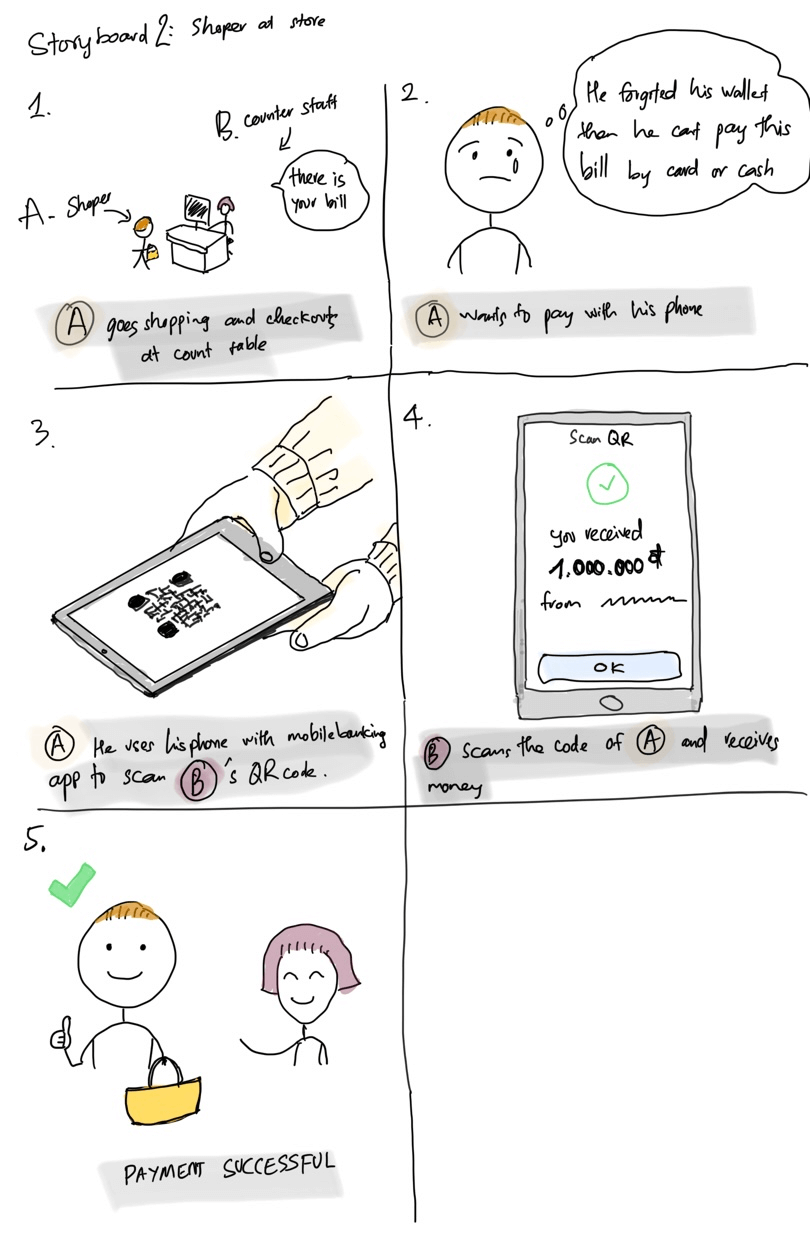 Storyboard 2: Shoper at store
1.
B. counter staff
there is
your bill
A - Shoper
A goes shopping and checkouts
at count table
2.
He forgoted his wallet
then he cant pay this
bill by card or cash
A wants to pay with his phone
3.
A He uses his phone with mobile banking
app to scan B's QR code.
4.
Scan QR
you received
1.000.000đ
from
OK
B scans the code of A and receives
money
5.
PAYMENT SUCCESSFUL